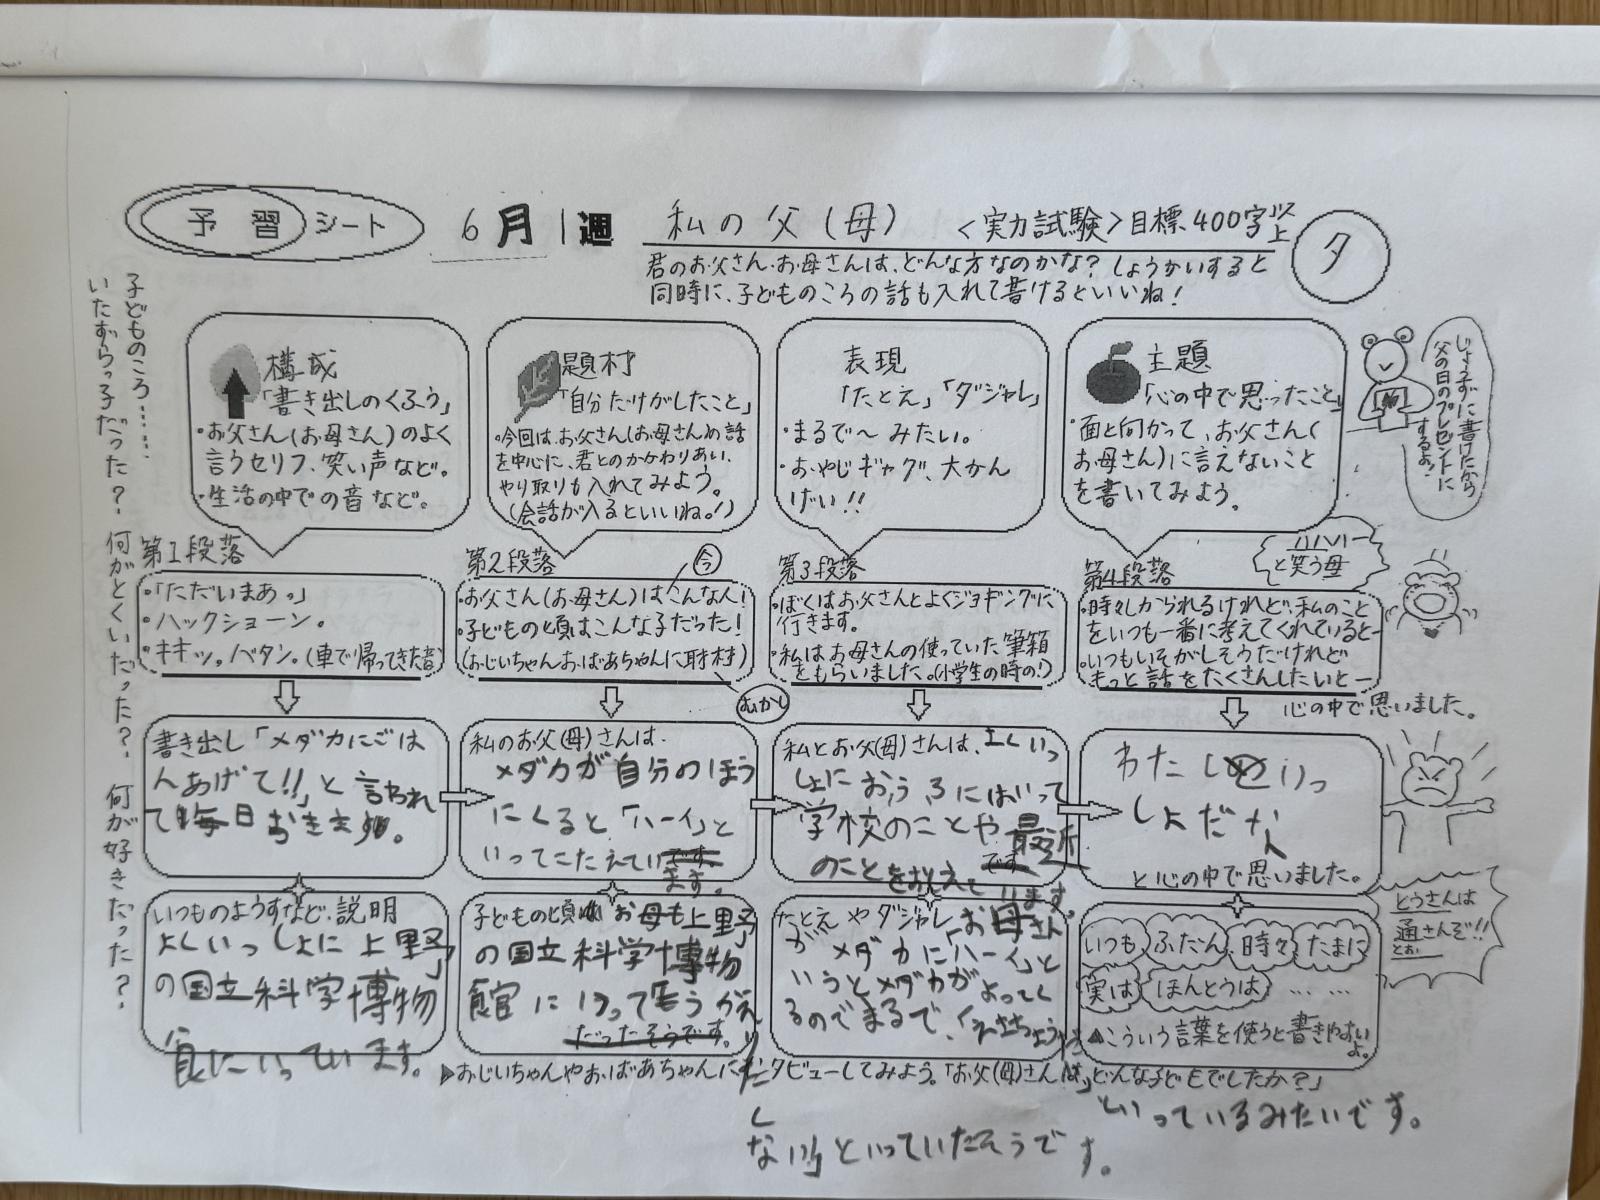 予習シート
6月1週
私の父(母)
<実力試験>目標400字以上
夕
君のお父さん、お母さんは、どんな方なのかな? しょうかいすると
同時に、子どものころの話も入れて書けるといいね!
子どものころ……
いたずらっ子だった? 何がとくいだった? 何が好きだった?
構成
「書き出しのくふう」
・お父さん(お母さん)のよく
言うセリフ、笑い声など。
・生活の中での音など。
題材
「自分だけがしたこと」
・今回は、お父さん(お母さん)の話
を中心に、君とのかかわりあい、
やり取りも入れてみよう。
(会話が入るといいね。!)
表現
「たとえ」「ダジャレ」
・まるで〜みたい。
・おやじギャグ、大かん
げい!!
主題
「心の中で思ったこと」
・面と向かって、お父さん(
お母さん)に言えないこと
を書いてみよう。
じょうずに書けたから
父の日のプレゼントに
するよ!
第1段落
・「ただいまあ。」
・ハックショーン。
・キキッ。バタン。(車で帰ってきた音)
第2段落
今
・お父さん(お母さん)はこんな人!
・子どもの頃はこんな子だった!
(おじいちゃんおばあちゃんに取材)
むかし
第3段落
・ぼくはお父さんとよくジョギングに
行きます。
・私はお母さんの使っていた筆箱
をもらいました。(小学生の時の!)
第4段落
ハハハハー
と笑う母
・時々しかられるけれど、私のこと
をいつも一番に考えてくれていると―
・いつもいそがしそうだけれど
もっと話をたくさんしたいと―
心の中で思いました。
書き出し「メダカにごは
んあげて!!」と言われ
て毎日おきます。
私のお父(母)さんは、
メダカが自分のほう
にくると、「ハーイ」と
いってこたえてい
です。
ます。
私とお父(母)さんは、よくいっ
しょにおふろにはいって
学校のことや最近
のことをおしえて
です
います。
わたし いっ
しょだな
と心の中で思いました。
いつものようすなど、説明
よくいっしょに上野
の国立科学博物
館にいっています。
子どもの頃は お母も上野
の国立科学博物
館に行って
だったそうです。
しな
といっていたそうです。
たとえやダジャレ「お母さん
がメダカに「ハーイ」と
いうとメダカがよってく
るのでまるで、
といっているみたいです。
いつも ふだん 時々 たまに
実は ほんとうは ……
▲こういう言葉を使うと書きやすい
よ。
とうさんは
通さんぞ!!
とお
▶おじいちゃんやおばあちゃんにインタビューしてみよう。「お父(母)さんは、どんな子どもでしたか?」